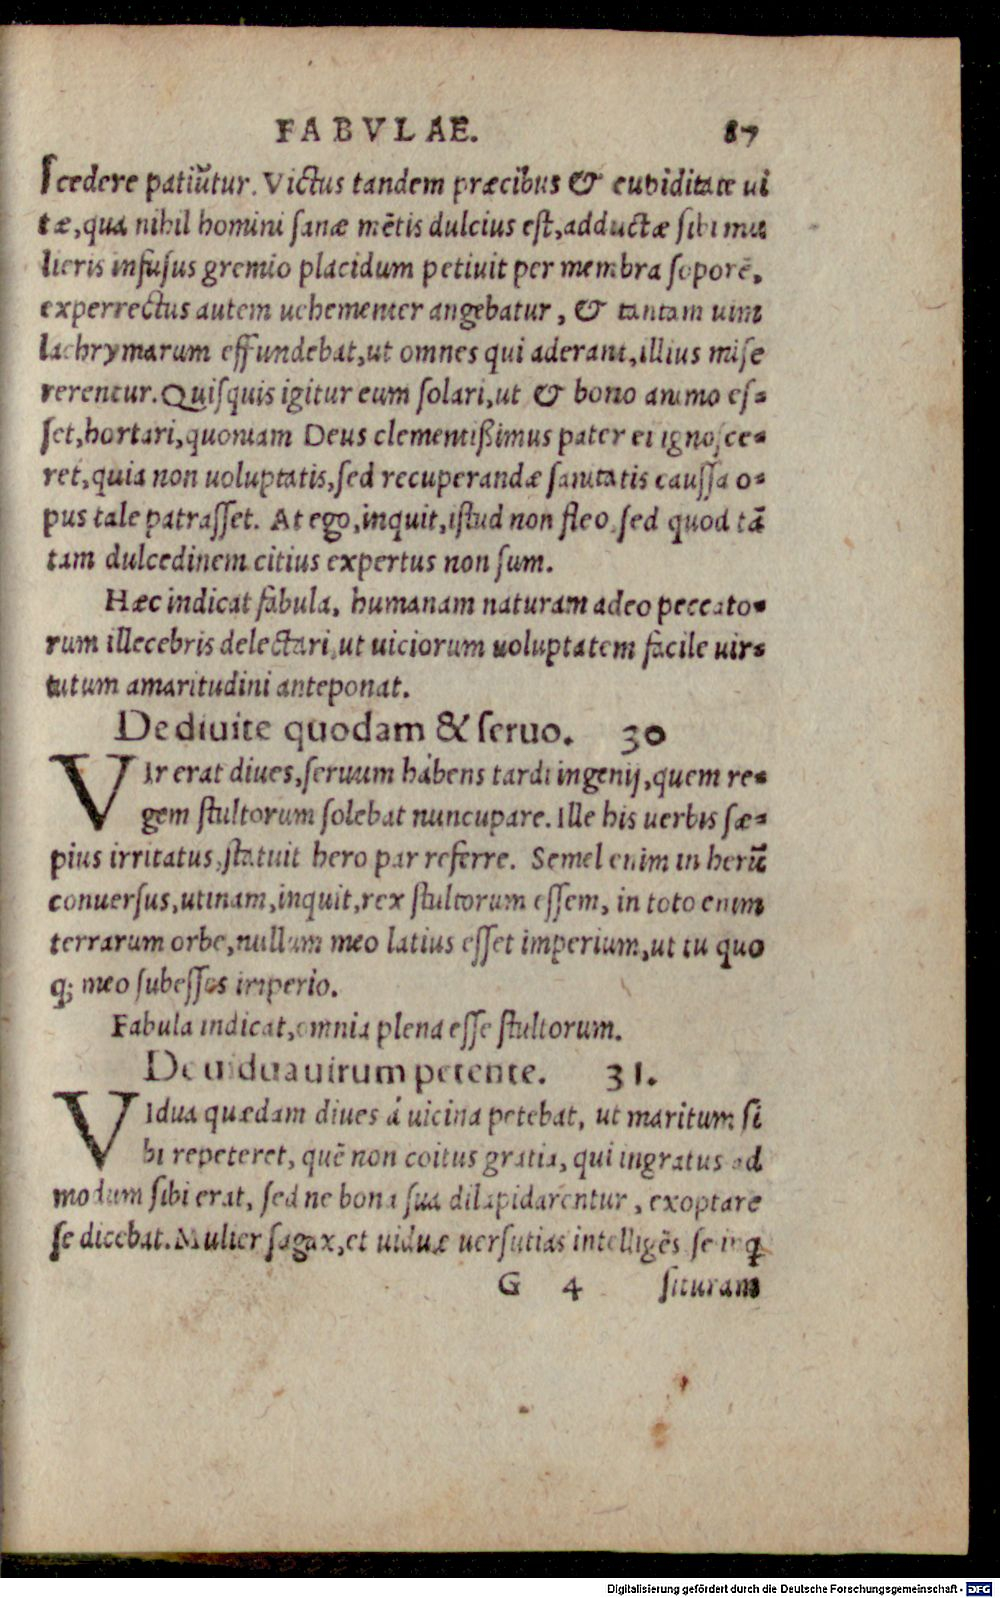 FABVLAE. 87
scedere patiũtur. Victus tandem præcibus & cupiditate ui
tæ, qua nihil homini sanæ mẽtis dulcius est, adductæ sibi mu
lieris infusus gremio placidum petiuit per membra soporẽ.
experrectus autem uehementer angebatur, & tantam uim
lachrymarum effundebat, ut omnes qui aderant, illius mise
rerentur. Quisquis igitur eum solari, ut & bono animo es-
set, hortari, quoniam Deus clementißimus pater ei ignosce-
ret, quia non uoluptatis, sed recuperandæ sanitatis caussa o-
pus tale patrasset. At ego, inquit, istud non fleo, sed quod tã
tam dulcedinem citius expertus non sum.
Hæc indicat fabula, humanam naturam adeo peccato-
rum illecebris delectari, ut uiciorum uoluptatem facile uir-
tutum amaritudini anteponat.
De diuite quodam & seruo. 30
VIr erat diues, seruum hábens tardi ingenij, quem re-
gem stultorum solebat nuncupare. Ille his uerbis sæ-
pius irritatus, statuit hero par referre. Semel enim in herũ
conuersus, utinam, inquit, rex stultorum essem, in toto enim
terrarum orbe, nullum meo latius esset imperium, ut tu quo
q; meo subesses imperio.
Fabula indicat, omnia plena esse stultorum.
De uidua uirum petente. 31.
VIdua quædam diues á uicina petebat, ut maritum si
bi repeteret, quẽ non coitus gratia, qui ingratus ad
modum sibi erat, sed ne bona sua dilapidarentur, exoptare
se dicebat. Mulier sagax, et uiduæ uersutias intelligẽs se inq̃
G 4 situram
Digitalisierung gefördert durch die Deutsche Forschungsgemeinschaft - DFG